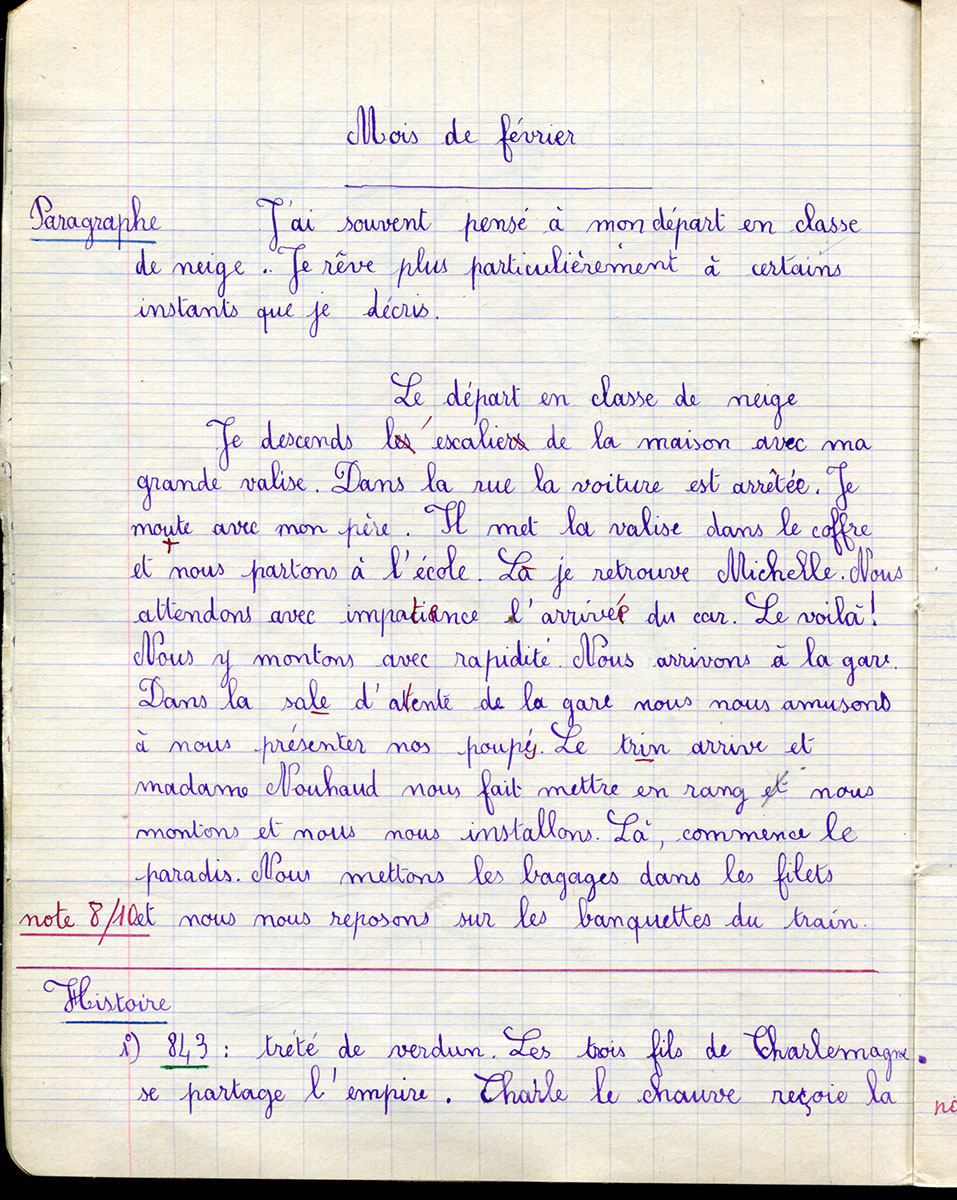 Mois de février
Paragraphe J'ai souvent pensé à mon départ en classe
de neige.. Je rêve plus particulièrement à certains
instants que je décris.
Le départ en classe de neige
Je descends les escaliers de la maison avec ma
grande valise. Dans la rue la voiture est arrêtée. Je
monte avec mon père. Il met la valise dans le coffre
et nous partons à l'école. Là je retrouve Michelle. Nous
attendons avec impatience l'arrivée du car. Le voilà!
Nous y montons avec rapidité. Nous arrivons à la gare.
Dans la sale d'attente de la gare nous nous amusons
à nous présenter nos poupés. Le trin arrive et
madame Nouhaud nous fait mettre en rang et nous
montons et nous nous installons. Là, commence le
paradis. Nous mettons les bagages dans les filets
note 8/10 et nous nous reposons sur les banquettes du train.
Histoire
1) 843 : trété de verdun. Les trois fils de Charlemagne.
se partage l'empire. Charle le chauve reçoie la